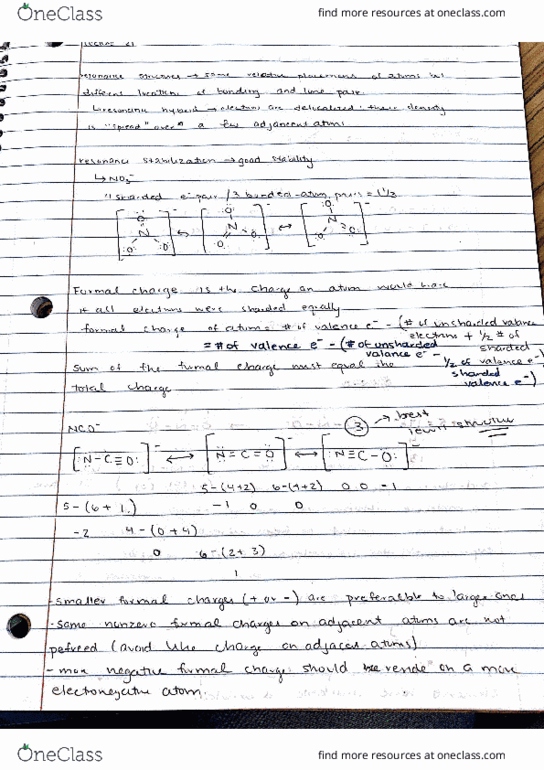 OneClass
find more resources at oneclass.com
Lecture 21
resonance structures → same relative placement of atoms but
different locations of bonding and lone pair.
↳ resonance hybrid → electrons are delocalized: their density
is "spread" over a few adjacent atoms
resonance stabilization → good stability
↳ NO3-
4 sharded e- pair / 3 bonded-atom pairs = 1 1/3
Formal charge is the charge an atom would have
if all electrons were sharded equally
formal charge of atom = # of valence e- - (# of unsharded valance
electrons + 1/2 # of
sharded
= # of valence e- - (# of unsharded
valance e- - 1/2 of valence e-)
sharded
valence e-)
Sum of the formal charge must equal the
total charge
NCO-
-3 → best
lewis structure
[:N-C≡O:]- ↔ [N=C=O]- ↔ [:N≡C-O:]-
5-(4+2) 6-(4+2) 0 0 -1
5-(6+1) -1 0 0
-2 4-(0+4)
0 6-(2+3)
1
-smaller formal charges (+ or -) are preferable to larger ones
-same nonzero formal charges on adjacent atoms are not
pefreed (avoid like charge on adjaces atoms)
-more negative formal charge should reside on a more
electonegative atom.
OneClass
find more resources at oneclass.com